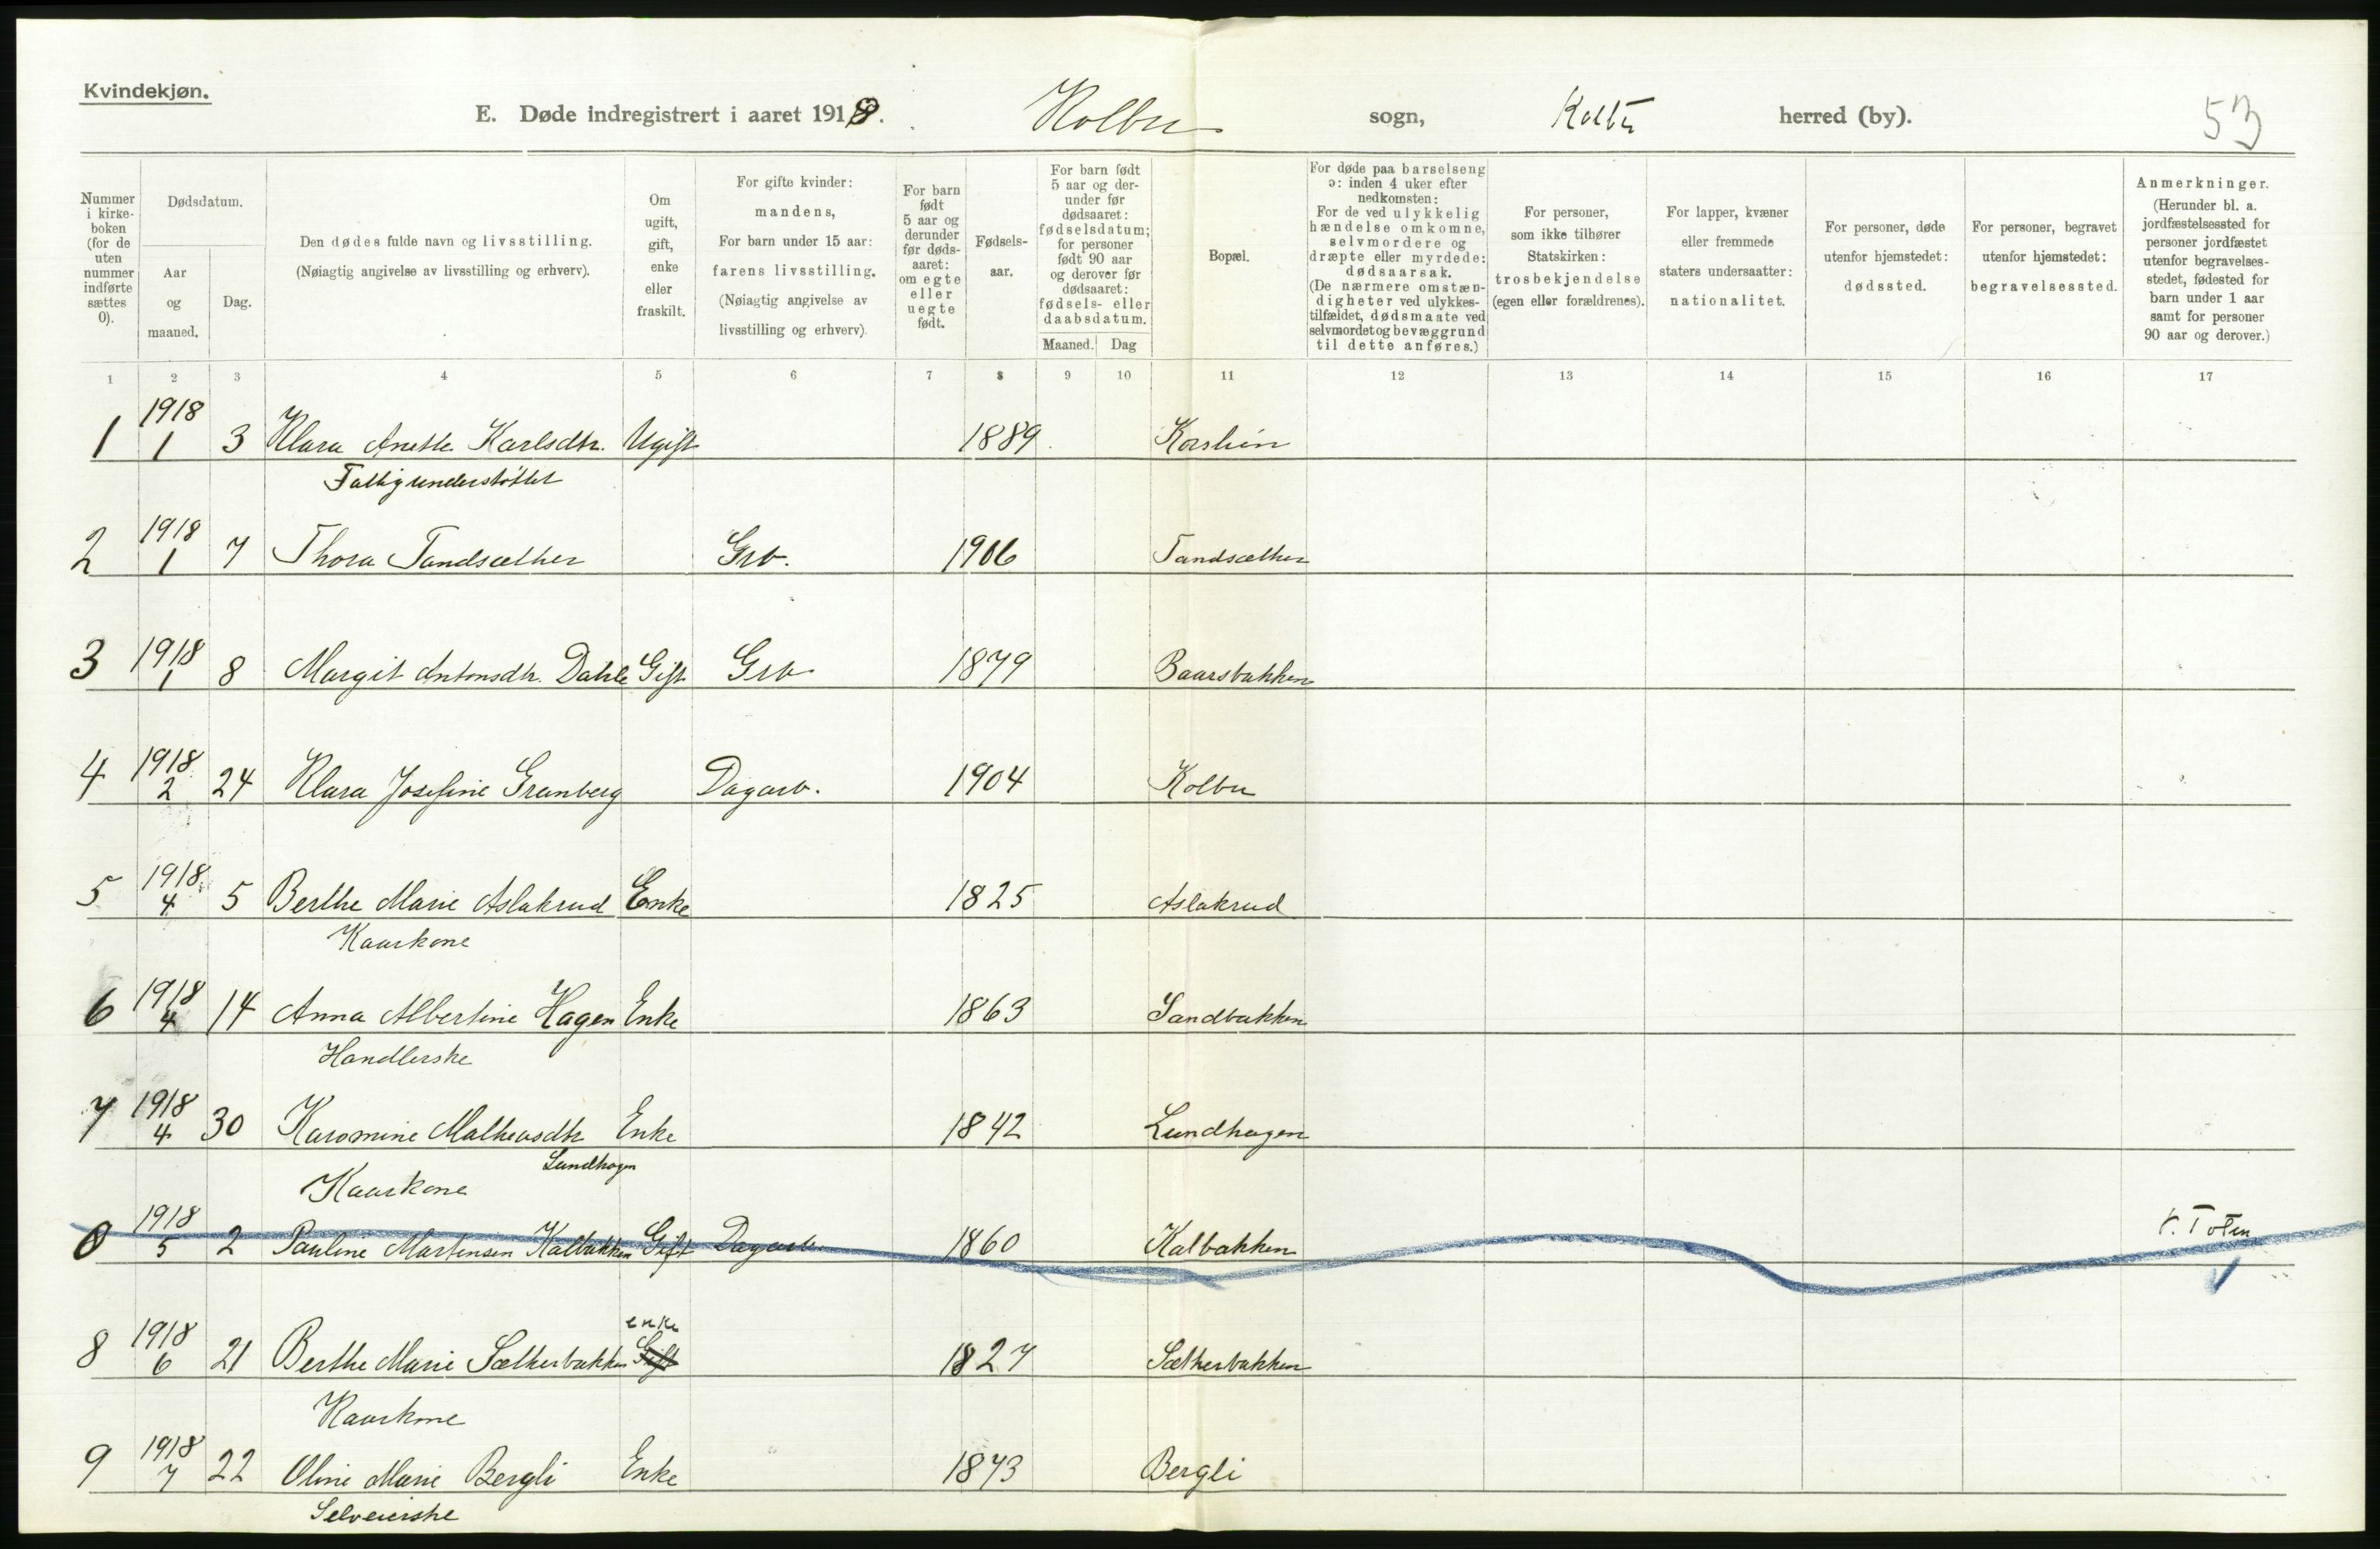 Kvindekjøn.
E. Døde indregistrert i aaret 1918. Kolbu sogn, Kolbu herred (by). 53
Nummer i kirkeboken (for de uten nummer indførte sættes 0).
Dødsdatum.
Aar og maaned.
Dag.
Den dødes fulde navn og livsstilling. (Nøiagtig angivelse av livsstilling og erhverv).
Om ugift, gift, enke eller fraskilt.
For gifte kvinder: mandens, For barn under 15 aar: farens livsstilling. (Nøiagtig angivelse av livsstilling og erhverv).
For barn født 5 aar og derunder før dødsaaret: om egte eller uegte født.
Fødselsaar.
For barn født 5 aar og derunder før dødsaaret: fødselsdatum; for personer født 90 aar og derover før dødsaaret: fødsels- eller daabsdatum.
Maaned. Dag
Bopæl.
For døde paa barselseng ɔ: inden 4 uker efter nedkomsten: For de ved ulykkelig hændelse omkomne, selvmordere og dræpte eller myrdede: dødsaarsak. (De nærmere omstændigheter ved ulykkestilfældet, dødsmaate ved selvmordet og bevæggrund til dette anføres.)
For personer, som ikke tilhører Statskirken: trosbekjendelse (egen eller forældrenes).
For lapper, kvæner eller fremmede staters undersaatter: nationalitet.
For personer, døde utenfor hjemstedet: dødssted.
For personer, begravet utenfor hjemstedet: begravelsessted.
Anmerkninger. (Herunder bl. a. jordfæstelsessted for personer jordfæstet utenfor begravelsesstedet, fødested for barn under 1 aar samt for personer 90 aar og derover.)
1 2 3 4 5 6 7 8 9 10 11 12 13 14 15 16 17
1918
1 1 3 Klara Anette Karlsdtr. Ugift 1889. Korslien
Fattigunderstøttet
1918
2 1 7 Thora Tandsæther Grb. 1906 Tandsæther
1918
3 1 8 Margit Antonsdtr. Dahle Gift Grb 1879 Baarsbakken
1918
4 2 24 Klara Josefine Granberg Dagarb. 1904 Kolbu
1918
5 4 5 Berthe Marie Aslakrud Enke 1825 Aslakrud
Kaarkone
1918
6 4 14 Anna Albertine Hagen Enke 1863 Sandbakken
Handlerske
1918
7 4 30 Karomine Matheasdtr Enke 1842 Lundhagen
Lundhagen
Kaarkone
1918 V. Toten
0 5 2 Pauline Martinsen Kalbakken Gift Dagarb. 1860 Kalbakken
1918 enke
8 6 21 Berthe Marie Sætherbakken Gift 1827 Sætherbakken
Kaarkone
1918
9 7 22 Oline Marie Bergli Enke 1873 Bergli
Selveierske